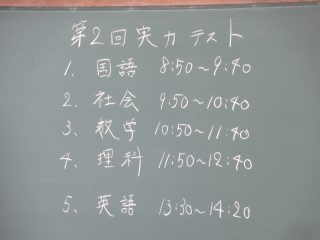 第2回実力テスト
1. 国語 8:50～9:40
2. 社会 9:50～10:40
3. 数学 10:50～11:40
4. 理科 11:50～12:40
5. 英語 13:30～14:20